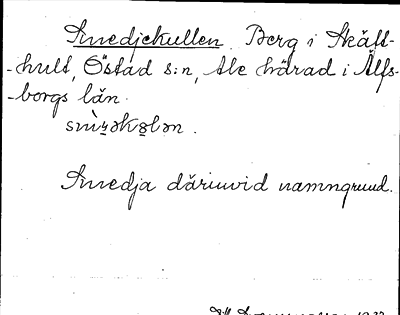 Smedjekullen. Berg i Skäft-
-hult, Östad s:n, Ale härad i Älfs-
-borgs län.
smìʒəkɷlən.
Smedja därinvid namngrund.